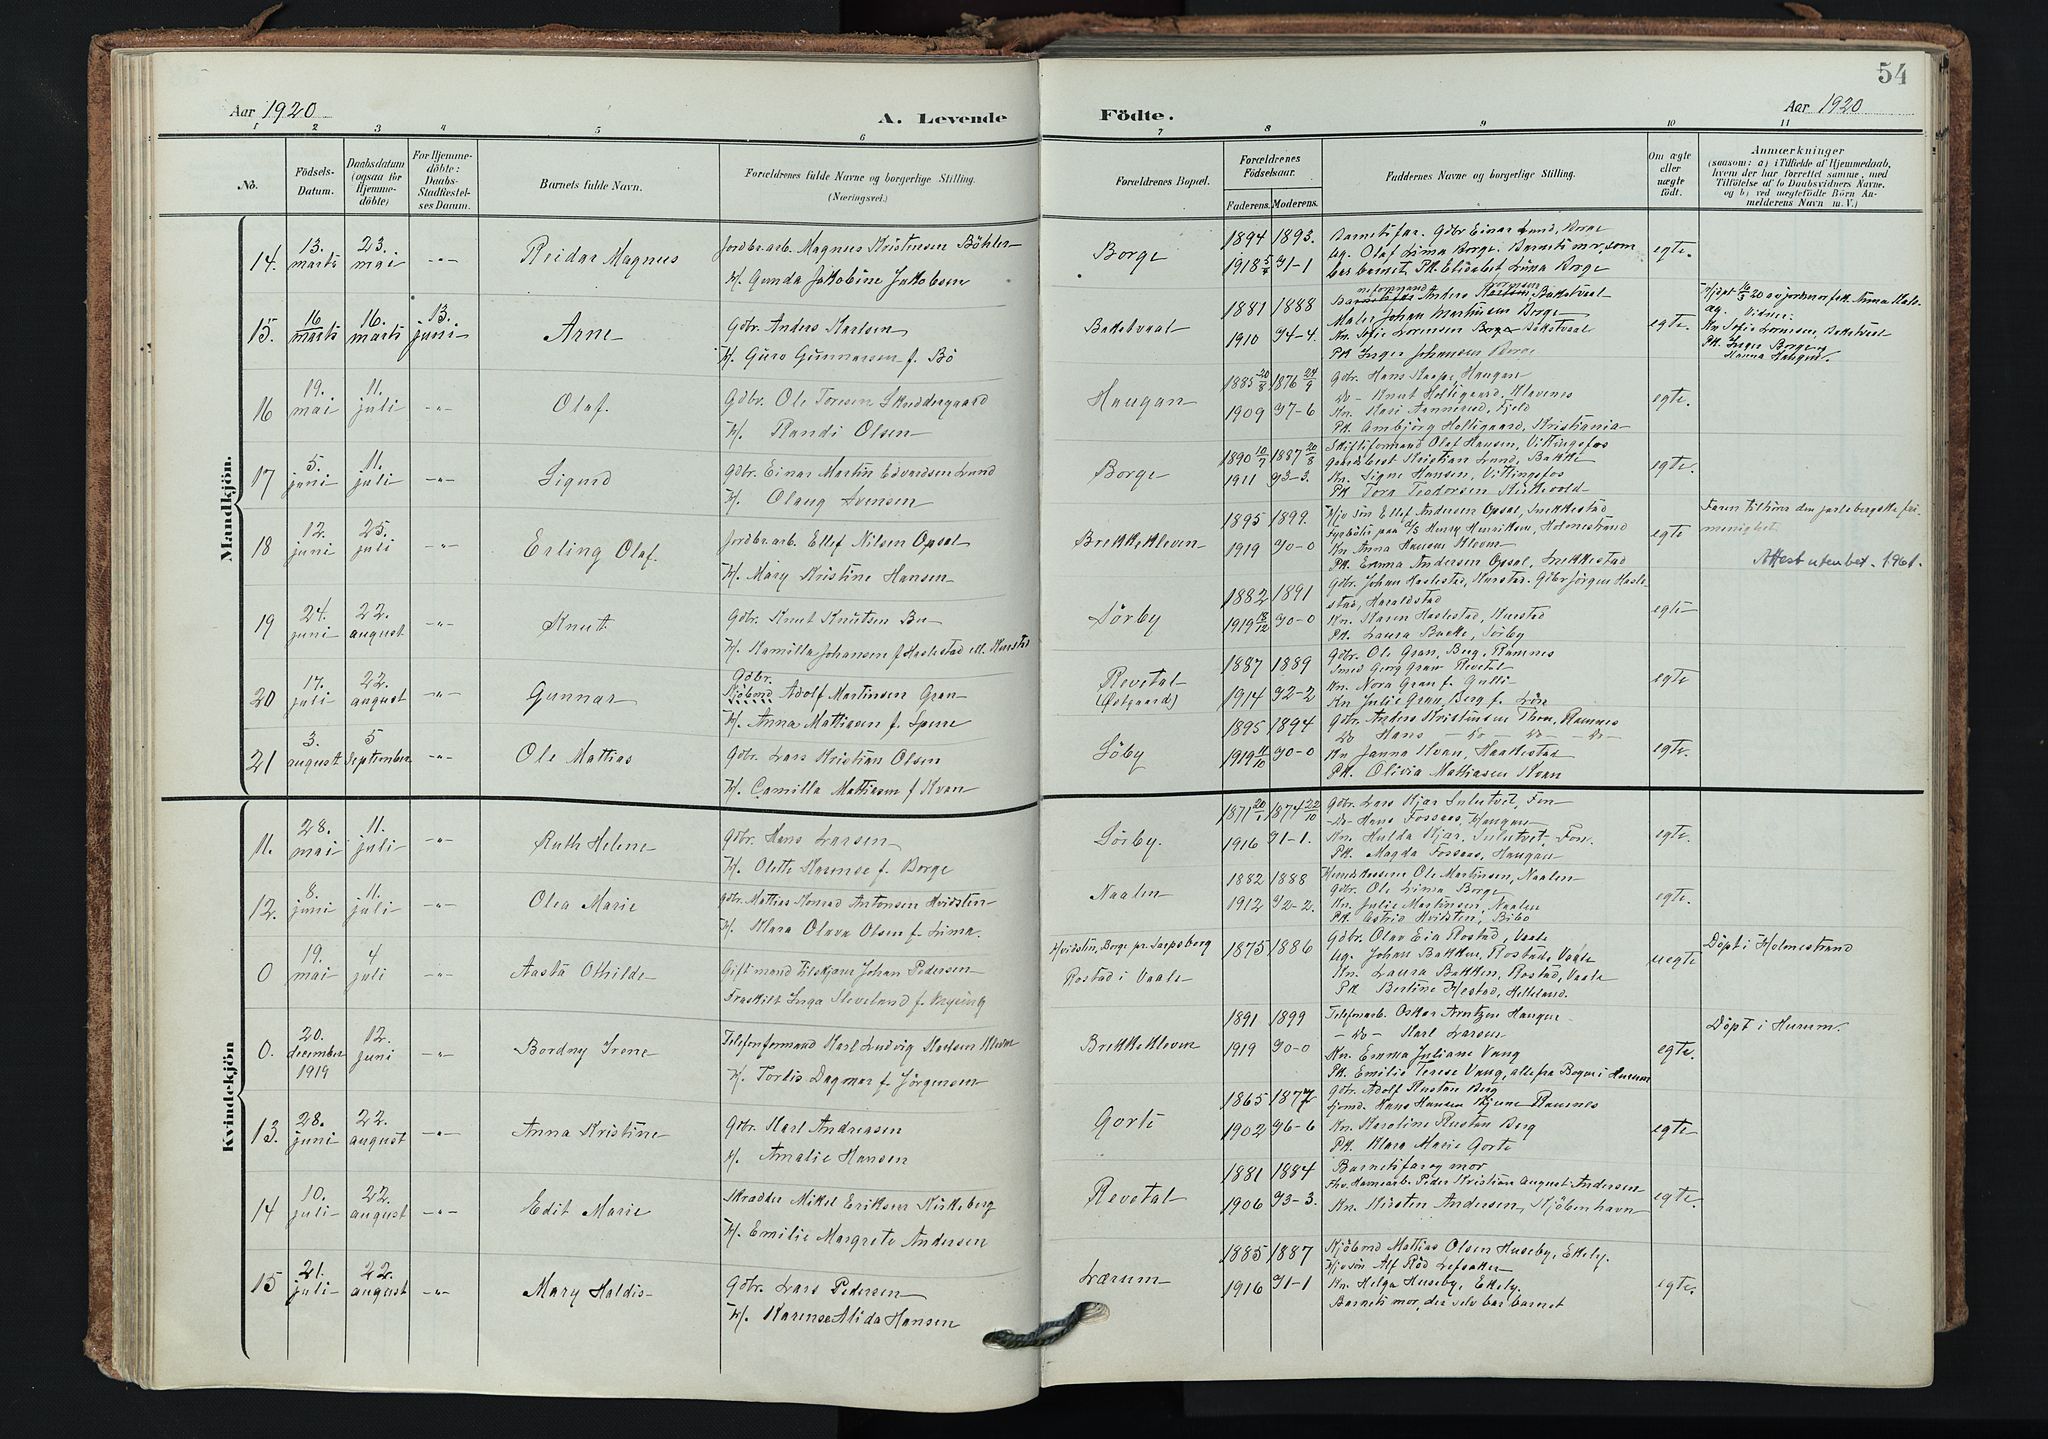 54
Aar 1920
A. Levende
Födte.
Aar 1920
1 2 3 4 5 6 7 8 9 10 11
No.
Födsels-Datum.
Daabsdatum (ogsaa for Hjemme-döbte)
For Hjemme-döbte: Daabs-Stadfæstel-ses Datum.
Barnets fulde Navn.
Forældrenes fulde Navne og borgerlige Stilling.
(Næringsvei.)
Forældrenes Bopæl.
Forældrenes Födselsaar.
Faderens. Moderens.
Faddernes Navne og borgerlige Stilling.
Om ægte eller uægte födt.
Anmærkninger
(saasom: a) i Tilfælde af Hjemmedaab,
hvem der har forrettet samme, med
Tilföielse af to Daabsvidners Navne,
og b) ved uægtefödte Börn An-
melderens Navn m. V.)
Mandkjön.
14. 13. marts 23. mai -"- Reidar Magnus
Jordbr.arb. Magnus Kristensen Böhler
H. Gunda Jakobine Jakobsen
Borge
1894 1893.
1918 5/8 Y1-1
Barnets far. Gdbr Einar Lund, Borge
Ug. Olaf Lima Borge. Barnets mor, som
bar barnet. Pk. Elisabet Lima Borge
egte.
15. 16 marts 16. marts 13. juni Arne
Gdbr. Anders Karlsen
H. Guro Gunnarsen f. Bö
Bakstvaal
1881 1888
1910 Y4-4.
Anders Bakstvaal
Maler Johan Martinsen Borge
Kn. Sofie Lorensen Bakstvaal
Pk Inger Johansen Borge
egte.
Hjdpt 16/3 20 av jordmor frk. Anna
Vidner:
Kn Sofie Lorensen, Bakstvaal
Pk. Inger Borge og
Hanna Haugan.
16 19. mai 11. juli -"- Olaf.
Gdbr. Ole Toresen Skuddergaard
H. Randi Olsen
Haugan
1885 20/8 1876 24/9
1909 Y7-6
Gdbr. Hans Kaape, Haugan
do- Knut Holtigaard, Klavenes
Kn. Kari Annerud, Fjeld
Pk. Ambjörg Holtigaard, Kristiania
egte.
17 5. juni 11. juli -"- Sigurd
Gdbr. Einar Martin Edvardsen Lund
H. Olaug Svensen
Borge
1890 10/7 1887 20/8
1911 Y3-3.
Skiftformand Olaf Hansen, Vittingsfos
Gaardbest Kristian Lund, Bakke
Kn. Signe Hansen, Vittingfos
Pk Tora Teodorsen
egte.
18 12. juni 25. juli -"- Erling Olaf.
Jordbr.arb. Ellef Nilsen Opsal
H. Mary Kristine Hansen
Brekkekleven
1895 1899.
1919 Y0-0
Hjv sön Ellef Andersen Opsal, Snekkestad
Fyrböter paa d/s Henry Henriksen, Holmestrand
Kn Anna Hansen Kleven
Pk. Emma Andersen Opsal, Snekkestad
egte
Faren tilhörer den jarlsbergske fri-
menighet.
Attest utenbet. 1961.
19 24. juni 22. august -"- Knut
Gdbr. Knut Knutsen Bu
H. Kamilla Johansen f Haslestad
Sörby
1882 1891
1919 18/12 Y0-0
Gdbr. Johan Haslestad, Kurstad. Gdbr Jörgen Hasle-
stad, Haraldstad
Kn. Karen Haslestad, Kurstad
Pk. Laura Bakke, Sörby
egte
20 17. juli 22. august -"- Gunnar
Gdbr.
Kjöbmd Adolf Martinsen Gran
H. Anna Mattisen f.
Revetal
(Östgaard)
1887 1889
1914 Y2-2
Gdbr. Ole Gran, Berg, Ramnes
Smed Georg Gran Revetal
Kn. Nora Gran f. Gulli
Kn Julie Gran, Berg f.
egte
21 3. august 5 september -"- Ole Mattias
Gdbr. Lars Kristian Olsen
H. Camilla Mattiasen f Kvan
Söby
1895 1894
1919 11/10 Y0-0
Gdbr. Anders Kristensen Thon, Ramnes
do Hans - do - do - do -
Kn Janna Kvan, Haakestad
Pk. Olivia Mattiasen Kvan
egte.
Kvindekjön
11. 28. mai 11. juli -"- Ruth Helene
Gdbr. Hans Larsen
H. Olette Karense f. Borge
Sörby.
1871 20/1 1874 22/10
1916 Y1-1.
Gdbr. Lars Kjær Sulutvet, Fon
do- Hans Fossaas, Haugan
Kn. Hulda Kjær, Sulutvet, Fon.
Pk. Magda Fossaas, Haugan
egte
12. 8. juni 11. juli -"- Olea Marie
Gdbr. Mattias Konrad Antonsen Hvidsten
H. Klara Olava Olsen f. Lima.
Naalen
1882 1888
1912 Y2-2.
Ole Martinsen, Naalen
Gdbr. Ole Lima, Borge
Kn. Julie Martinsen, Naalen
Pk. Astrid Hvidsten, Bibo
egte.
0 19. mai 4 juli -"- Aasta Othilde
Gift mand Johan Pedersen
Fraskilt Inga Sleveland f.
Hvidsten, Borge pr. Sarpsborg
Rostad i Vaale
1875 1886
Gdbr. Olav Eia Rostad, Vaale
Ug. Johan Bakken, Rostad, Vaale
Kn. Laura Bakken, Rostad, Vaale
Pk Bertine Hestad, Helleland.
uegte
Döpt i Holmestrand
0. 20. december 1919 12. juni -"- Bordny Irene
Telefonformand Karl Ludvig
H. Tordis Dagmar f. Jörgensen
Brekkekleven
1891 1899
1919 Y0-0
Telefonarb. Oskar Arntzen Haugen
- do - Karl Larsen
Kn. Emma Juliane Vang
Pk. Emilie Terese Vang, alle fra Bogen i Hurum
egte.
Döpt i Hurum.
13. 28. juni 22. august -"- Anna Kristine
Gdbr. Karl Andreasen
H. Amalie Hansen
Gorte
1865 1877
1902 Y6-6
Gdbr. Adolf Rustan Berg
Hans Hansen Ramnes
Kn. Karoline Rustan Berg
Pk. Klara Marie Gorte
egte
14 10. juli 22. august -"- Edit Marie
Skrædder Mikel Eriksen Kirkeberg
H. Emilie Margrete Andersen
Revetal
1881 1884
1906 Y3-3.
Barnets far og mor
Peder Kristian August Andersen
Kn. Kirsten Andersen, Kjöbenhavn
egte
15 21. juli 22. august -"- Mary Haldis
Gdbr. Lars Pedersen
H. Karense Alida Hansen
Lærum
1885 1887
1916 Y1-1
Kjöbmd Mattias Olsen Huseby, Ekely.
Hjv sön Alf Röd Lefsaker
Kn. Helga Huseby, Ekely.
Barnets mor, der selv bar barnet
egte.